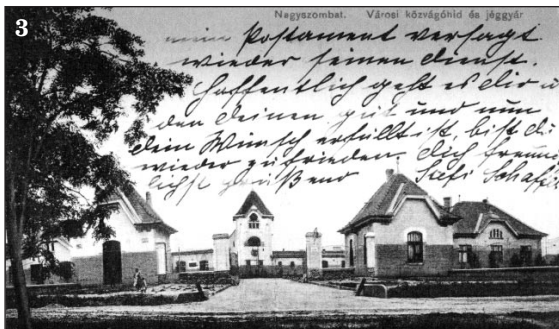 3
Nagyszombat. Városi közvágóhid és jéggyár
mein Postament versagt
wieder seinen Dienst.
Hoffentlich geht es dir u
den deinen gut und nun
dein Wunsch erfüllt ist, bist du
wieder zufrieden dich freund
lichst grüßend